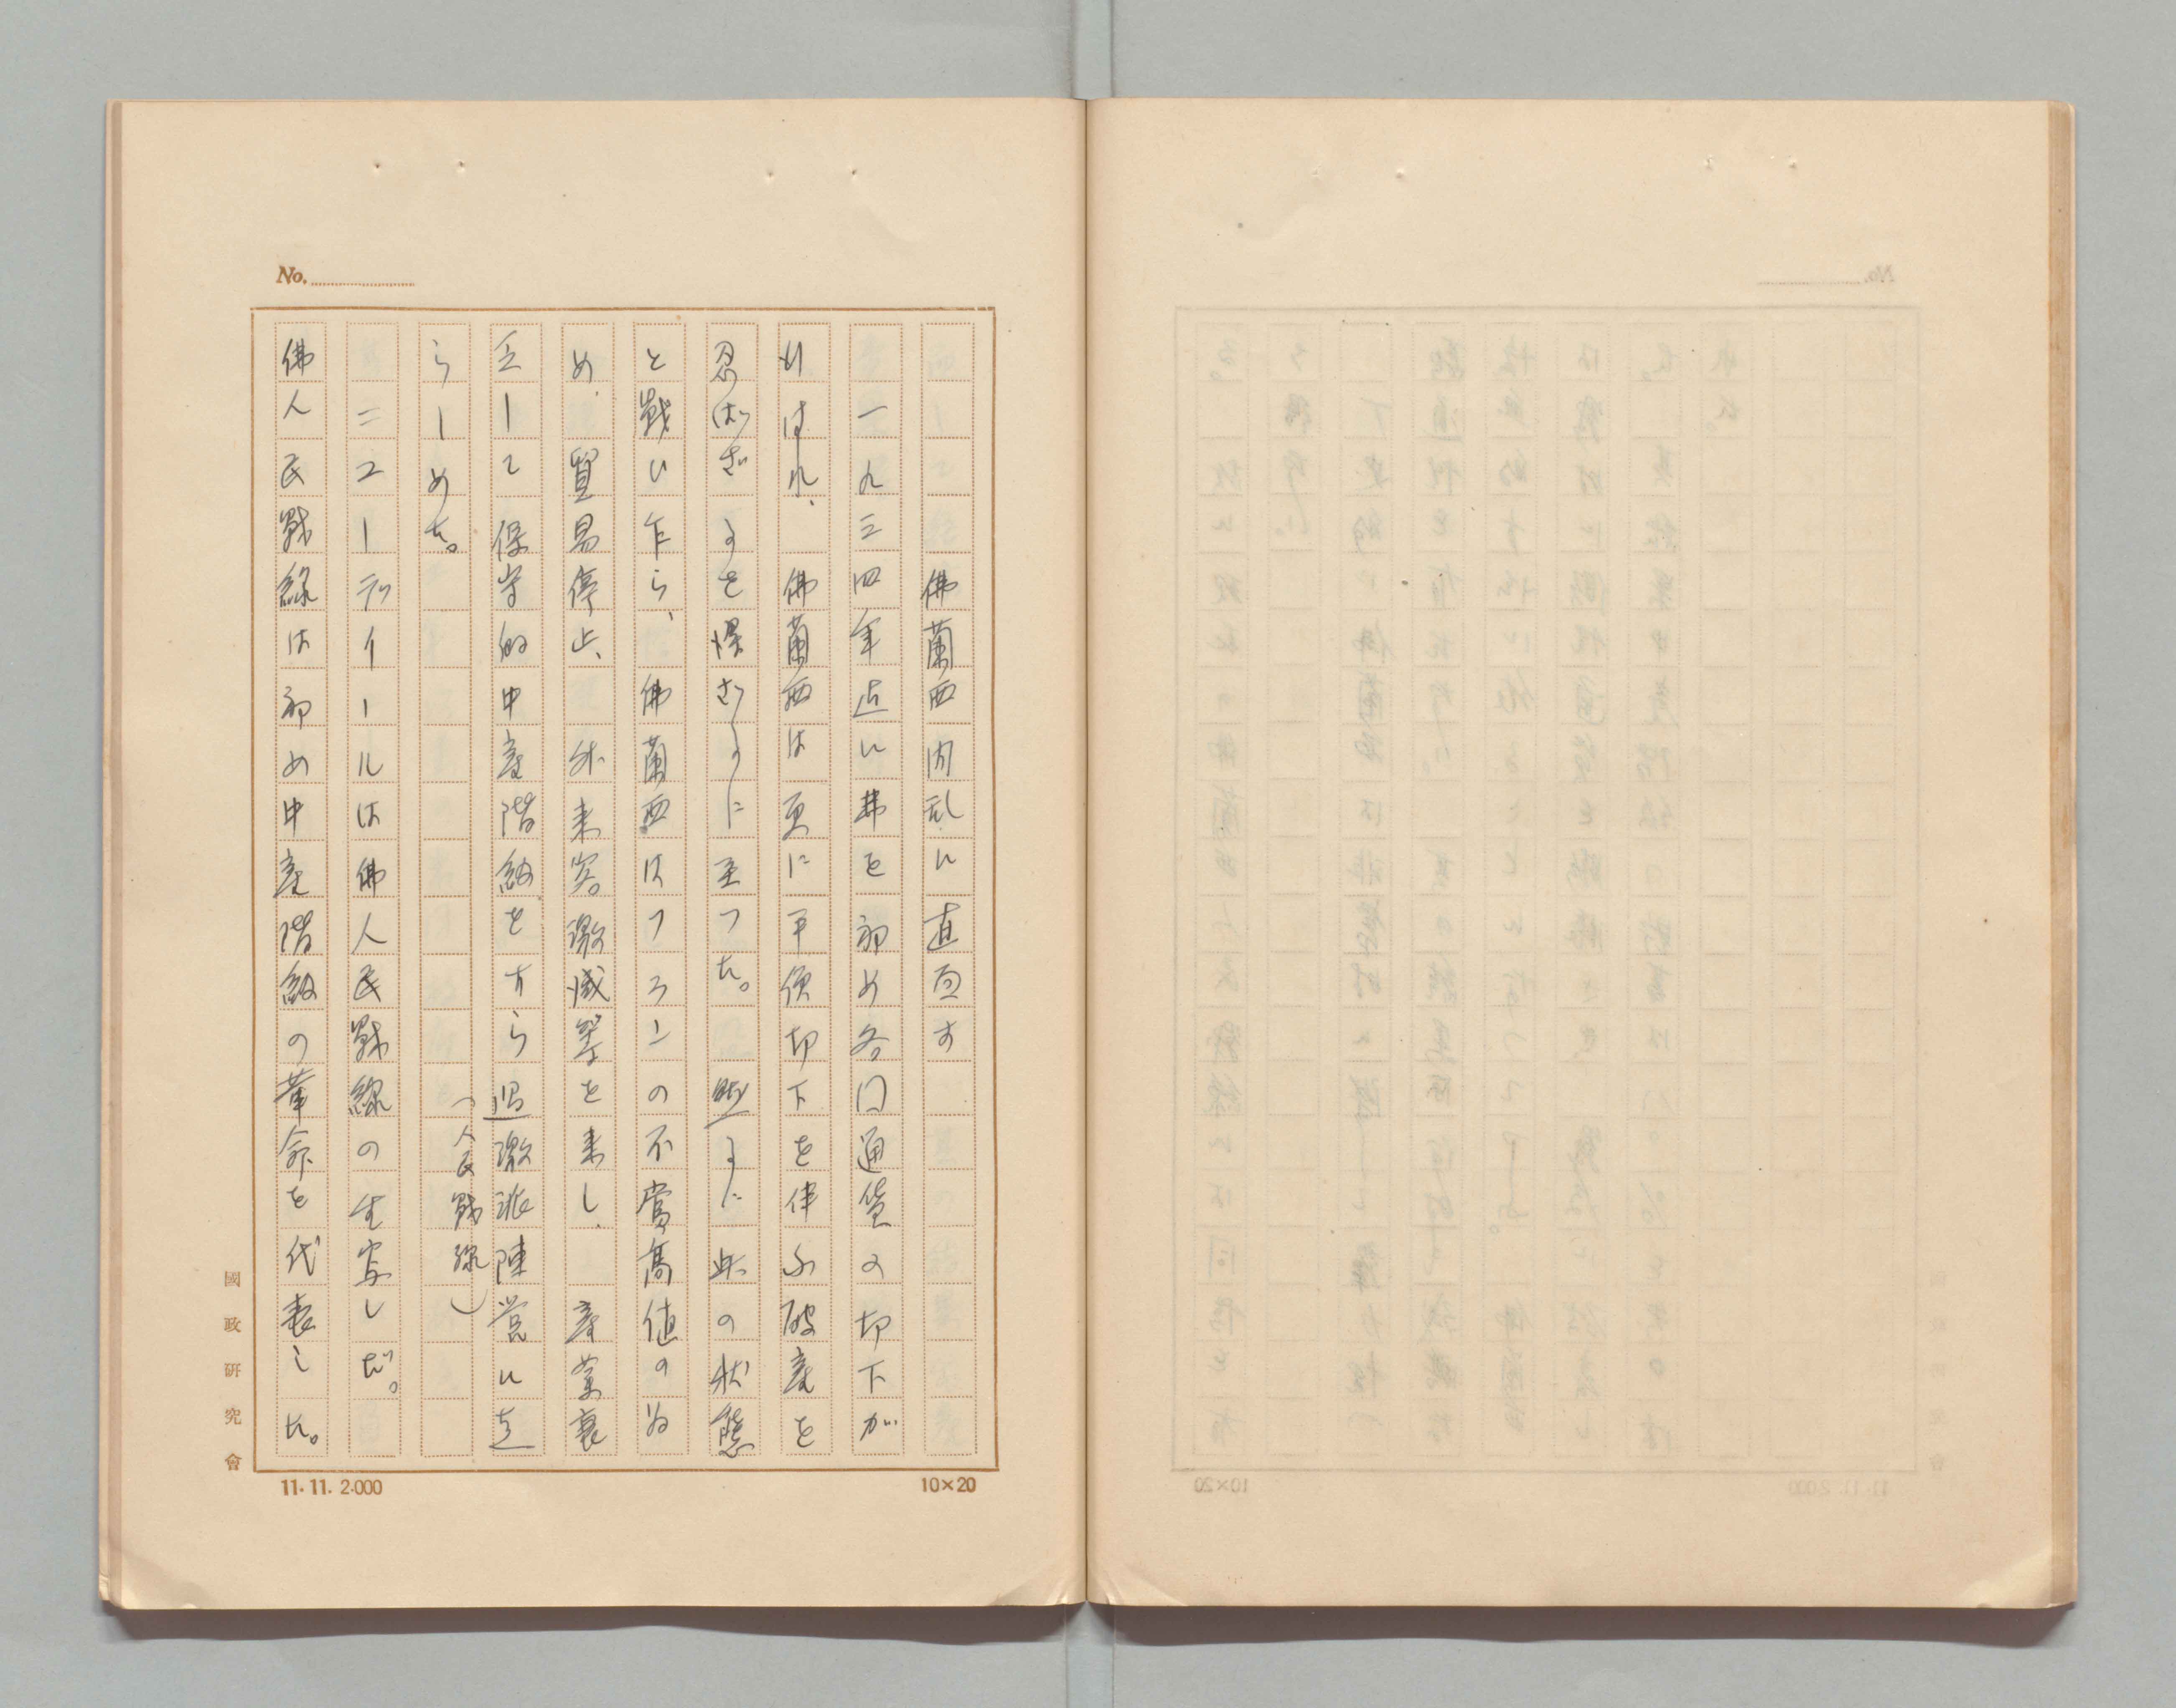 No.
佛蘭西内乱に直面す
一九三四年迠に弗を初め各国通貨の切下が
行はれ、佛蘭西は更に平価切下を伴ふ破産を
忍ばざるを得ざるに至つた。然るに此の状態
と戦ひ乍ら、佛蘭西はフランの不當高値の為
め、貿易停止、外来客激減等を来し、産業衰
亡して保守的中産階級をすら過激派陣営に走
らしめた。（人民戦線）
ニユーデイールは佛人民戦線の生写しだ。
佛人民戦線は初め中産階級の革命を代表した。
國政研究會
11.11.2.000
10×20